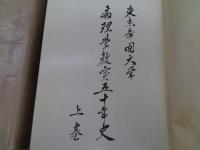 東京帝国大学
病理学教室五十年史
上巻